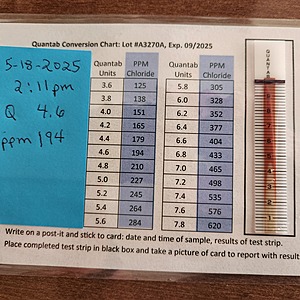 Quantab Conversion Chart: Lot #A3270A, Exp. 09/2025
5-18-2025
2:11pm
Q 4.6
ppm 194
Quantab Units PPM Chloride
3.6 125
3.8 138
4.0 151
4.2 165
4.4 179
4.6 194
4.8 210
5.0 227
5.2 245
5.4 264
5.6 284
Quantab Units PPM Chloride
5.8 305
6.0 328
6.2 352
6.4 377
6.6 404
6.8 433
7.0 465
7.2 498
7.4 535
7.6 576
7.8 620
QUANTAB
Write on a post-it and stick to card: date and time of sample, results of test strip.
Place completed test strip in black box and take a picture of card to report with result